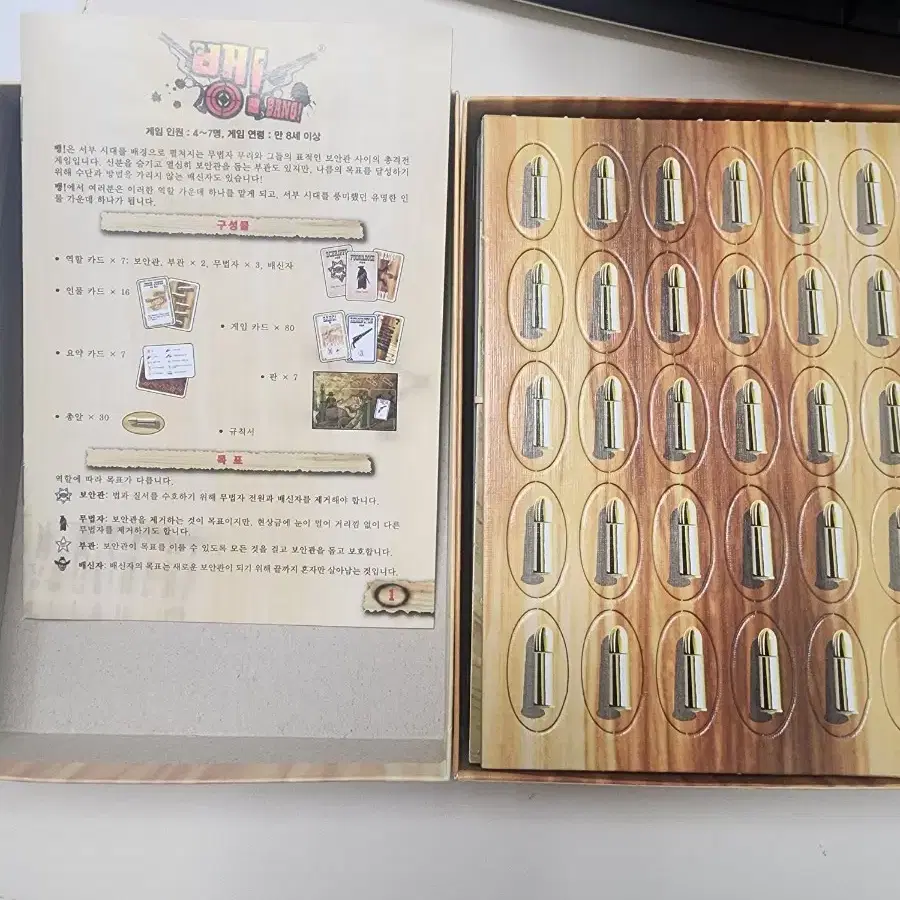 뱅!
BANG!
게임 인원 : 4~7명, 게임 연령 : 만 8세 이상
뱅!은 서부 시대를 배경으로 펼쳐지는 무법자 무리와 그들의 표적인 보안관 사이의 총격전
게임입니다. 신분을 숨기고 열심히 보안관을 돕는 부관도 있지만, 나름의 목표를 달성하기
위해 수단과 방법을 가리지 않는 배신자도 있습니다!
뱅!에서 여러분은 이러한 역할 가운데 하나를 맡게 되고, 서부 시대를 풍미했던 유명한 인
물 가운데 하나가 됩니다.
구성물
• 역할 카드 × 7: 보안관, 부관 × 2, 무법자 × 3, 배신자
• 인물 카드 × 16
• 게임 카드 × 80
• 요약 카드 × 7
• 판 × 7
• 총알 × 30
• 규칙서
목표
역할에 따라 목표가 다릅니다.
보안관: 법과 질서를 수호하기 위해 무법자 전원과 배신자를 제거해야 합니다.
무법자: 보안관을 제거하는 것이 목표이지만, 현상금에 눈이 멀어 거리낌 없이 다른
무법자를 제거하기도 합니다.
부관: 보안관이 목표를 이룰 수 있도록 모든 것을 걸고 보안관을 돕고 보호합니다.
배신자: 배신자의 목표는 새로운 보안관이 되기 위해 끝까지 혼자만 살아남는 것입니다.
1